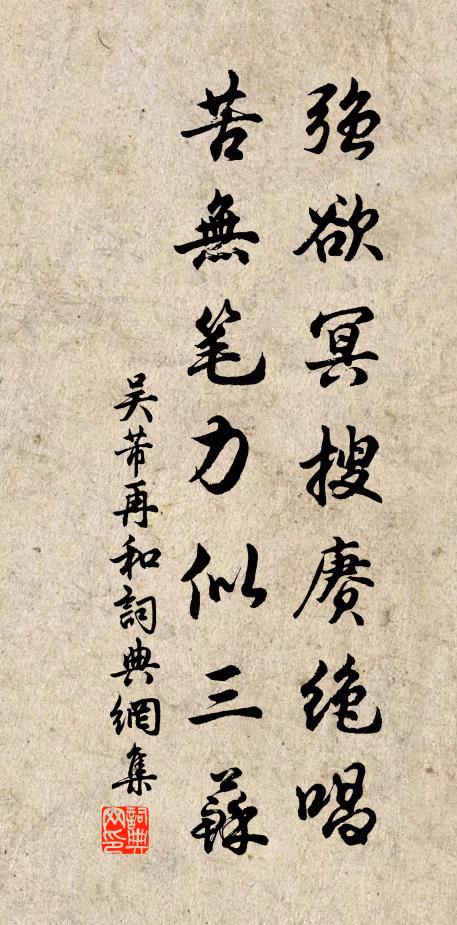 強欲冥搜赓绝唱
苦無笔力似三蘇
吴芾再和詞典網集
詞典网印